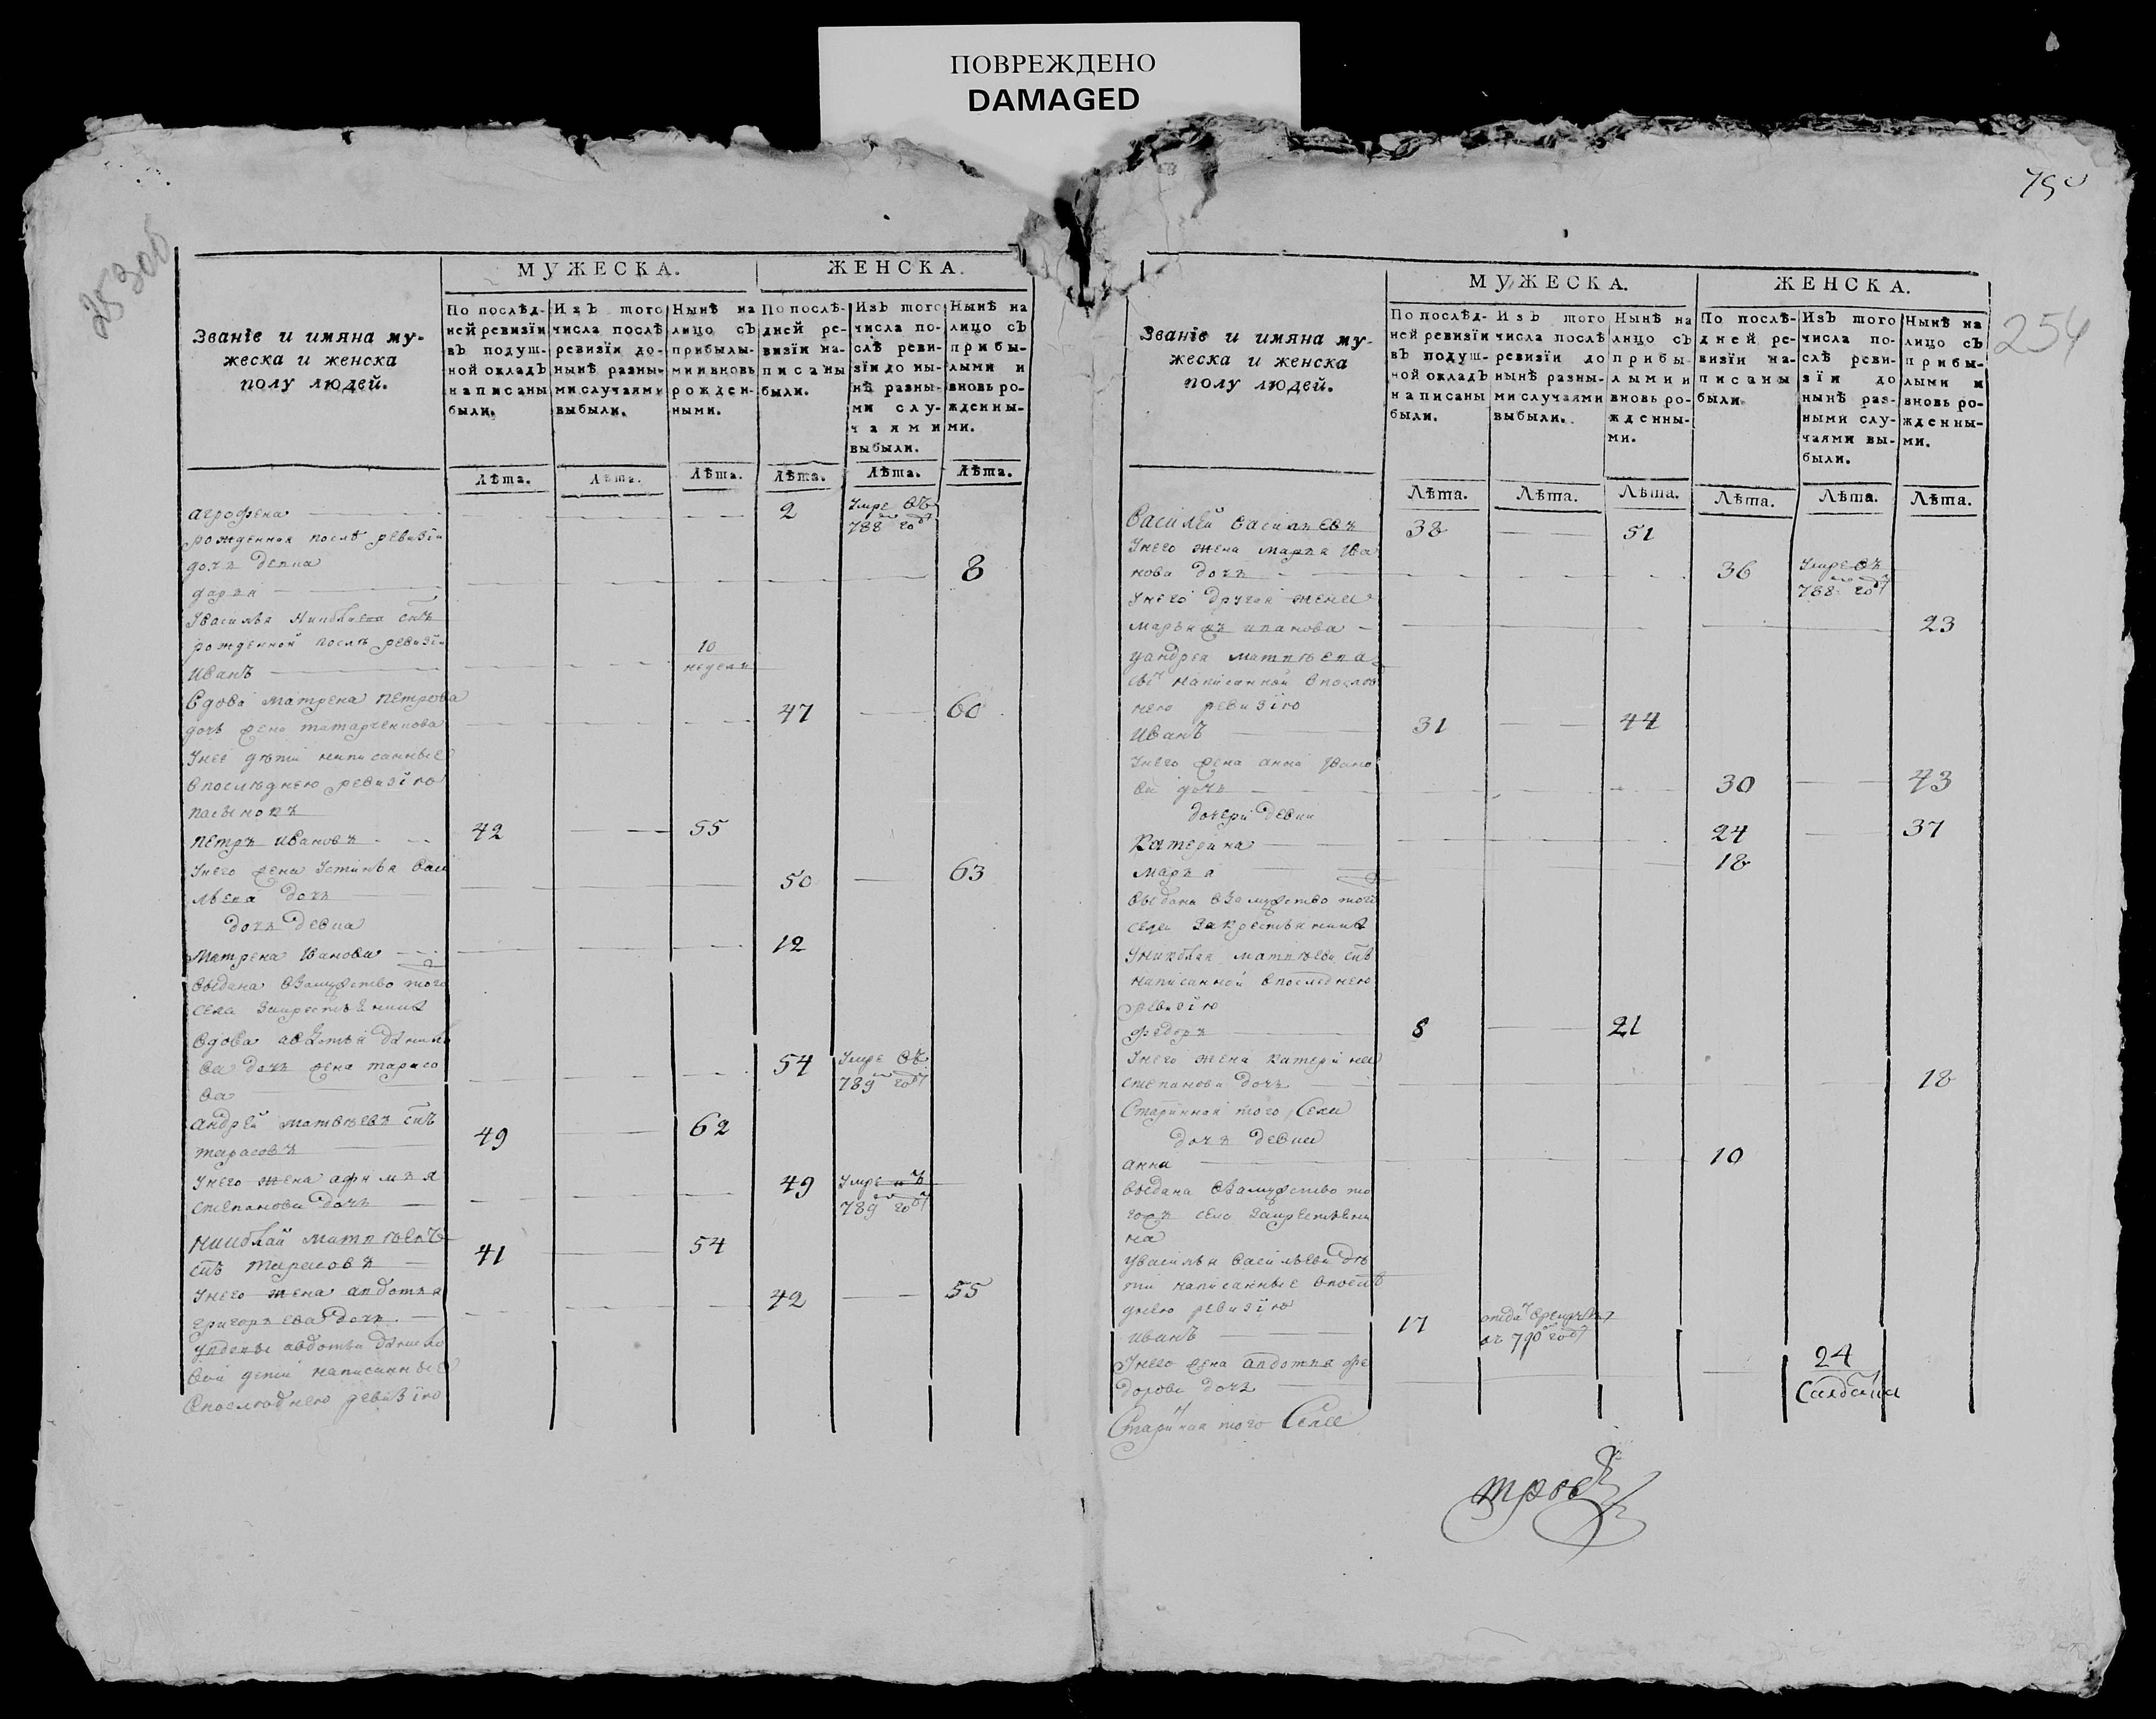 ПОВРЕЖДЕНО
DAMAGED
750
254
МУЖЕСКА.
ЖЕНСКА.
Званїе и имяна му-
жеска и женска
полу людей.
По послѣд-
ней ревизїи
въ подуш-
ной окладъ
написаны
были.
Изъ того
числа послѣ
ревизїи до-
нынѣ разны-
ми случаями
выбыли.
Нынѣ на
лицо съ
прибылы-
ми и вновь
рожден-
ными.
По послѣ-
дней ре-
визїи на-
писаны
были.
Изъ того
числа по-
слѣ реви-
зїи до ны-
нѣ разны-
ми слу-
чаями
выбыли.
Нынѣ на
лицо съ
прибы-
лыми и
вновь ро-
жденны-
ми.
Лѣта.
Лѣта.
Лѣта.
Лѣта.
Лѣта.
Лѣта.
агрофена 2 Умре въ
788 году
рожденная послѣ ревизїи
дочь девка
дарья 8
Увасилья николаева снъ
рожденной послѣ ревизїи 10
иванъ недели
вдова матрена петрова
дочь жена 47 60
Унее дѣти написанные
впослѣднею ревизїю
пасынокъ
петръ ивановъ 42 55
Унего жена Устинья васи
льева дочь 50 63
дочь девка
матрена иванова 12
выдана взамужство того
села закрестьянина
вдова авдотья данило
ва дочь жена тарасо 54 Умре въ
ва 789 году
андрей матвѣевъ снъ
тарасовъ 49 62
Унего жена афимья 49 Умре въ
степанова дочь 789 году
николай матвѣевъ
снъ тарасовъ 41 54
Унего жена авдотья
григорьева дочь 42 55
Удовы авдотьи данило
вой дети написанные
впослѣднею ревизїю
МУЖЕСКА.
ЖЕНСКА.
Званїе и имяна му-
жеска и женска
полу людей.
По послѣд-
ней ревизїи
въ подуш-
ной окладъ
написаны
были.
Изъ того
числа послѣ
ревизїи до
нынѣ разны-
ми случаями
выбыли.
Нынѣ на
лицо съ
прибы-
лыми и
вновь ро-
жденны-
ми.
По послѣ-
дней ре-
визїи на-
писаны
были.
Изъ того
числа по-
слѣ реви-
зїи до
нынѣ раз-
ными слу-
чаями вы-
были.
Нынѣ на
лицо съ
прибы-
лыми и
вновь ро-
жденны-
ми.
Лѣта.
Лѣта.
Лѣта.
Лѣта.
Лѣта.
Лѣта.
василей васильевъ 38 51
Унего жена марья ива
нова дочь 36 Умре въ
788 году
Унего другая жена
марья иванова 23
Уандрея матвѣева
снъ написанной впослѣд
нею ревизїю
иванъ 31 44
Унего жена анна ивано
ва дочь 30 43
дочери девки
катерина 24 37
марья 18
выдана взамужство того
села закрестьянина
Униколая матвѣева снъ
написанной впоследнею
ревизїю
федоръ 8 21
Унего жена катерина
степанова дочь 18
Старинная того села
дочь девка
анна 10
выдана взамужство то
гожъ села закрестьяни
на
Увасилья васильева дѣ
ти написанные впослѣ
днею ревизїю
иванъ 17 отданъ врекруты
въ 790 году
Унего жена авдотья фе 24
дорова дочь Салдатка
Старинная того села